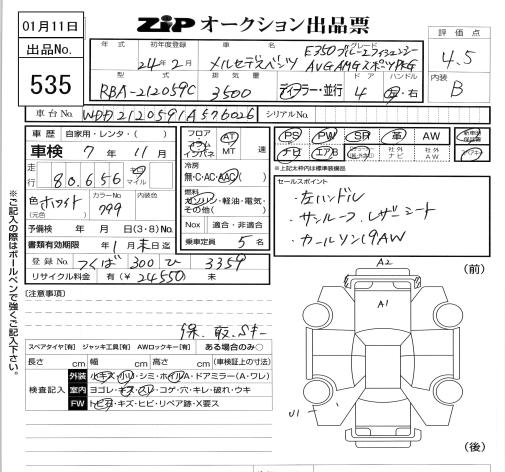 01月11日
ZiP オークション出品票
出品No.
535
評価点
4.5
内装
B
年式 初年度登録 車名 グレード
24年2月 メルセデスベンツ E350ブルーエフィシェンシー
AVG AMGスポーツPKG
型式 排気量 ドア ハンドル
RBA-212059C 3500 ディーラー・並行 4 左・右
車台No. WDD2120591A576026 シリアルNo.
車歴 自家用・レンタ・( )
車検 7年11月
走行 80,656 キロ マイル
色 ホワイト (元色) カラーNo. 799 内装色
予備検 年 月 日(3・8)No.
書類有効期限 1月末日迄
登録No. つくば 300 ひ 3359
リサイクル料金 有(¥24550) 未
フロア コラム インパネ AT MT 速
冷房
無・C・AC・AAC( )
燃料
ガソリン・軽油・電気・
その他( )
Nox 適合・非適合
乗車定員 5名
PS PW SR 革 AW 新車時保証書
ナビ エアB 社外ナビ 社外AW
※上記太枠内は標準装備品
セールスポイント
・左ハンドル
・サンルーフ、レザーシート
・カールソン19AW
[注意事項]
保、取、Sキー
スペアタイヤ[有] ジャッキ工具[有] AWロックキー[有] ある場合のみ○
長さ cm 幅 cm 高さ cm (車検証上の寸法)
検査記入
外装 小キズ・小U・シミ・ホイルA・ドアミラー(A・ワレ)
室内 ヨゴレ・キズ・スレ・コゲ・穴・キレ・破れ・ウキ
FW トビ石・キズ・ヒビ・リペア跡・X要ス
※ご記入の際はボールペンで強くご記入下さい。
A2
(前)
A1
U1
(後)